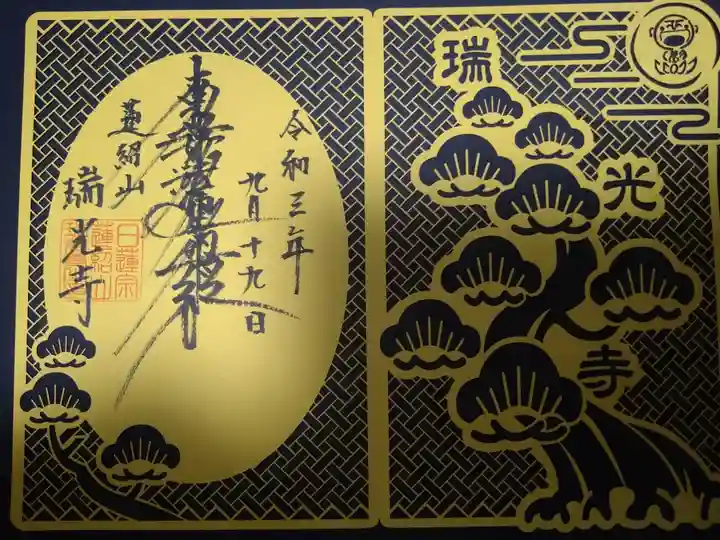 令和三年
九月十九日
南無妙法蓮華経
蓮紹山
瑞光寺
日蓮宗
蓮紹山
瑞光寺
瑞光寺